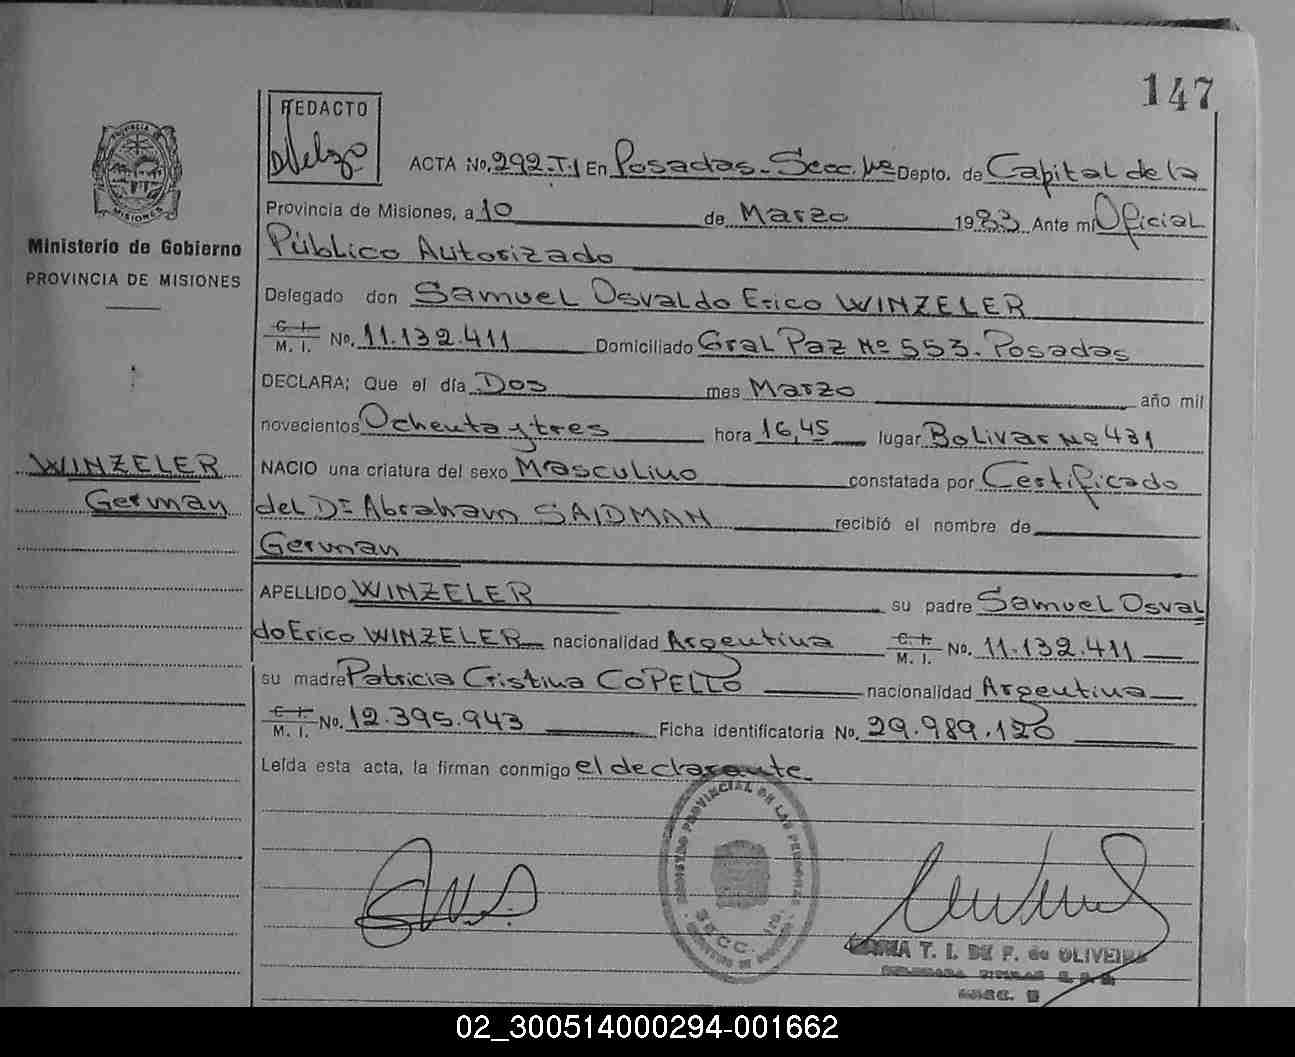 147
REDACTO
PROVINCIA DE
MISIONES
Ministerio de Gobierno
PROVINCIA DE MISIONES
WINZELER
German
ACTA No. 292-T.I En Posadas-Secc. 1ª Depto. de Capital de la
Provincia de Misiones, a 10 de Marzo 1983 Ante mí Oficial
Público Autorizado
Delegado don Samuel Osvaldo Erico WINZELER
C. I.
M. I. No. 11.132.411 Domiciliado Gral Paz Nº 553. Posadas
DECLARA; Que el día Dos mes Marzo año mil
novecientos Ochenta y tres hora 16,45 lugar Bolivar Nº 431
NACIO una criatura del sexo Masculino constatada por Certificado
del Dr Abraham SAIDMAN recibió el nombre de
German
APELLIDO WINZELER su padre Samuel Osval
do Erico WINZELER nacionalidad Argentina C. I.
M. I. No. 11.132.411
su madre Patricia Cristina COPELLO nacionalidad Argentina
C. I.
M. I. No. 12.395.943 Ficha identificatoria No. 29.989.120
Leída esta acta, la firman conmigo el declarante.
REGISTRO PROVINCIAL DE LAS PERSONAS
SECC. 1a.
T. I. DE F. de OLIVEIRA
02_300514000294-001662